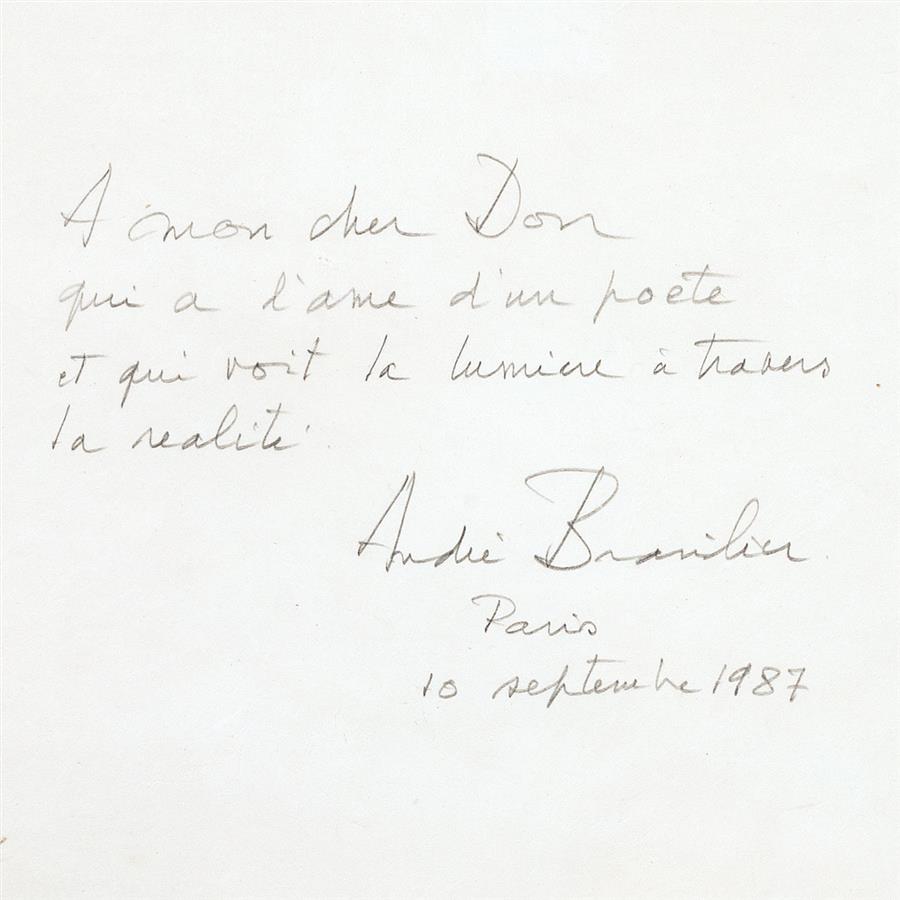 A mon cher Don
qui a l'ame d'un poete
et qui voit la lumiere à travers
la realité.
André Brasilier.
Paris
10 septembre 1987